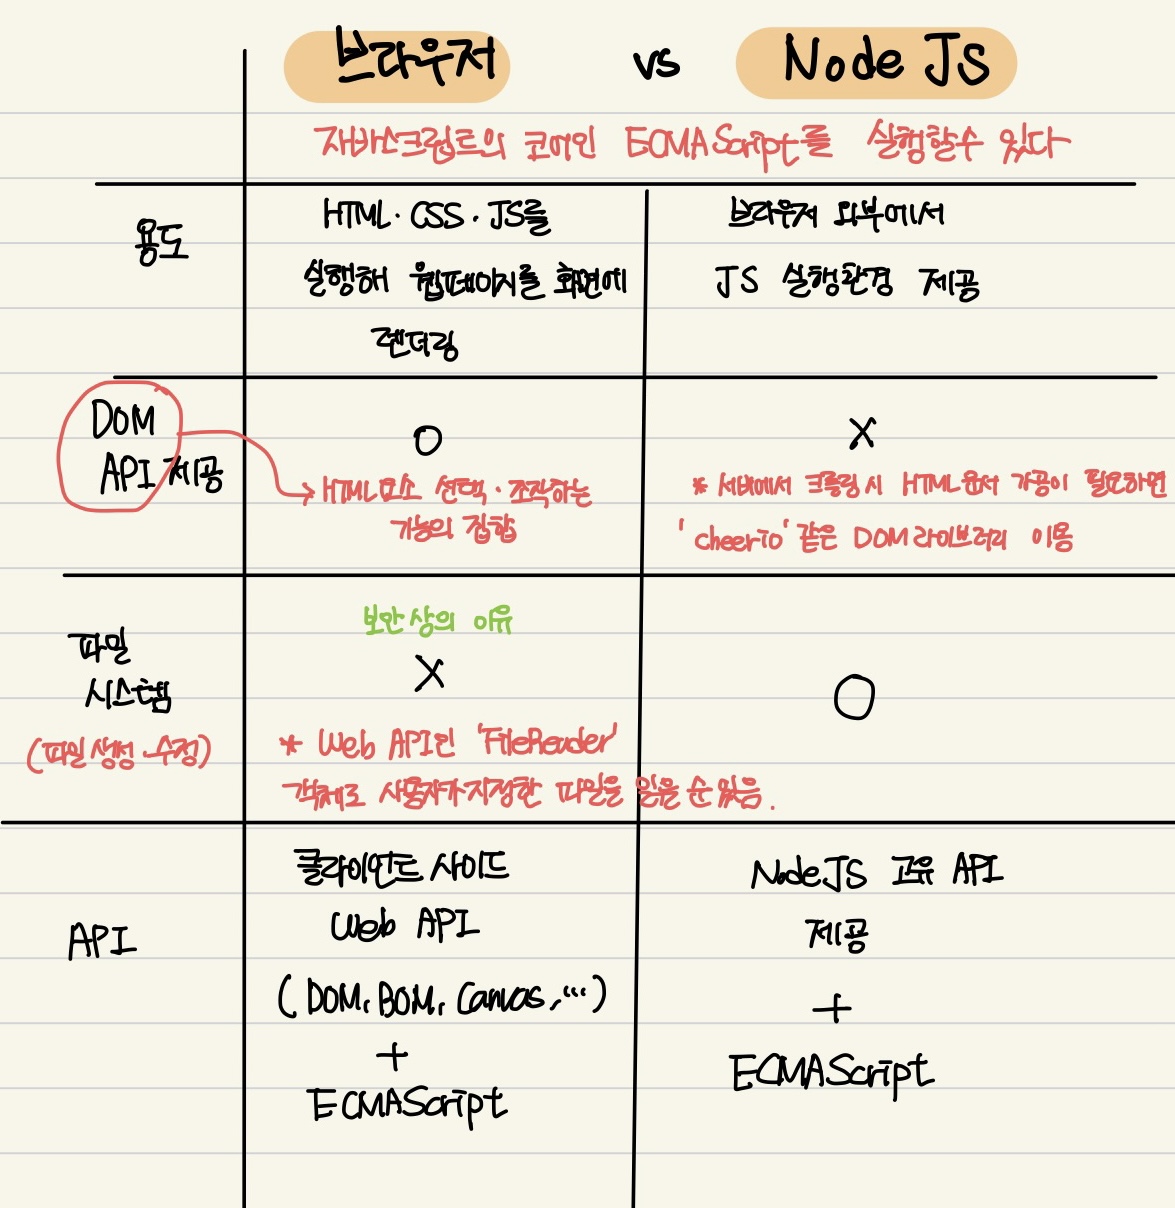 브라우저 vs Node JS
자바스크립트의 코어인 ECMAScript를 실행할 수 있다
용도
HTML·CSS·JS를
실행해 웹페이지를 화면에
렌더링
브라우저 외부에서
JS 실행환경 제공
DOM
API 제공
O
→ HTML요소 선택·조작하는
기능의 집합
X
* 서버에서 크롤링 시 HTML문서 가공이 필요하면
'cheerio' 같은 DOM 라이브러리 이용
파일
시스템
(파일 생성·수정)
보안상의 이유
X
* Web API인 'FileReader'
객체로 사용자가 지정한 파일을 읽을 순 있음.
O
API
클라이언트 사이드
Web API
(DOM, BOM, Canvas, ...)
+
ECMAScript
NodeJS 고유 API
제공
+
ECMAScript